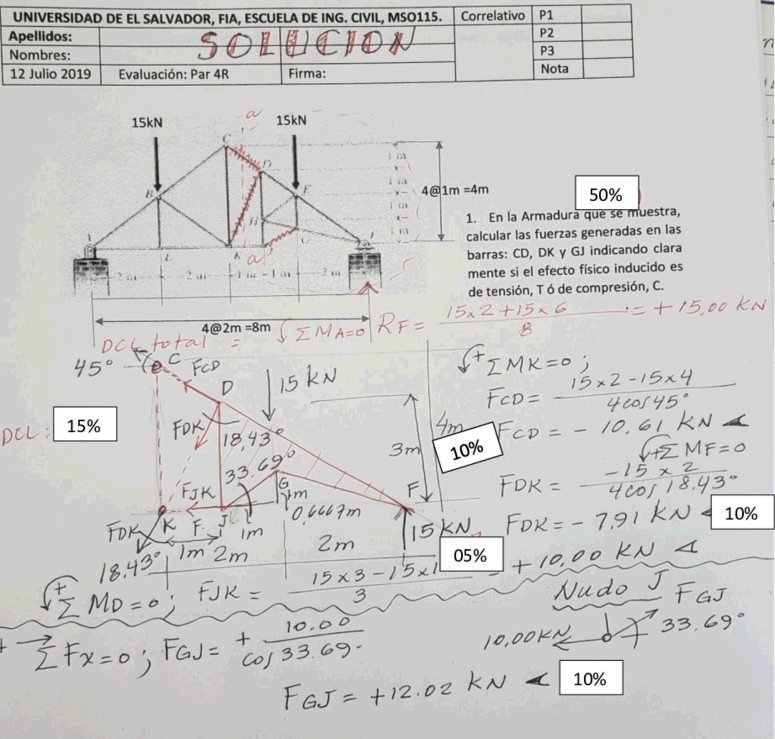 UNIVERSIDAD DE EL SALVADOR, FIA, ESCUELA DE ING. CIVIL, MSO115. Correlativo P1
Apellidos: P2
SOLUCION
Nombres: P3
12 Julio 2019 Evaluación: Par 4R Firma: Nota
a
15kN 15kN
C
D
1 m
4@1m =4m
50%
B E
1. En la Armadura que se muestra,
calcular las fuerzas generadas en las
barras: CD, DK y GJ indicando clara
mente si el efecto físico inducido es
de tensión, T ó de compresión, C.
A H F
L K J
a
2 m 2 m 1 m 1 m 2 m
4@2m =8m
DCL total = ΣMA=0 RF= 15x2+15x6 / 8 = +15,00 KN
45° C FCD
D 15 KN
+ ΣMK=0;
FCD= 15x2-15x4 / 4cos45°
DCL: 15%
FDK 18,43°
3m 4m 10%
FCD = - 10.61 KN
+ ΣMF=0
33.69°
FJK G 1m F
FDK = -15 x 2 / 4cos18.43°
K J 1m 0,6667m
FDK 15 KN
FDK= - 7,91 KN 10%
18.43° 1m 2m 2m 05%
+ ΣMD=0; FJK = 15x3-15x1 / 3 = +10,00 KN
Nudo J FGJ
+ ΣFx=0; FGJ= + 10.00 / cos33.69°
10,00KN 33.69°
FGJ = +12.02 KN 10%